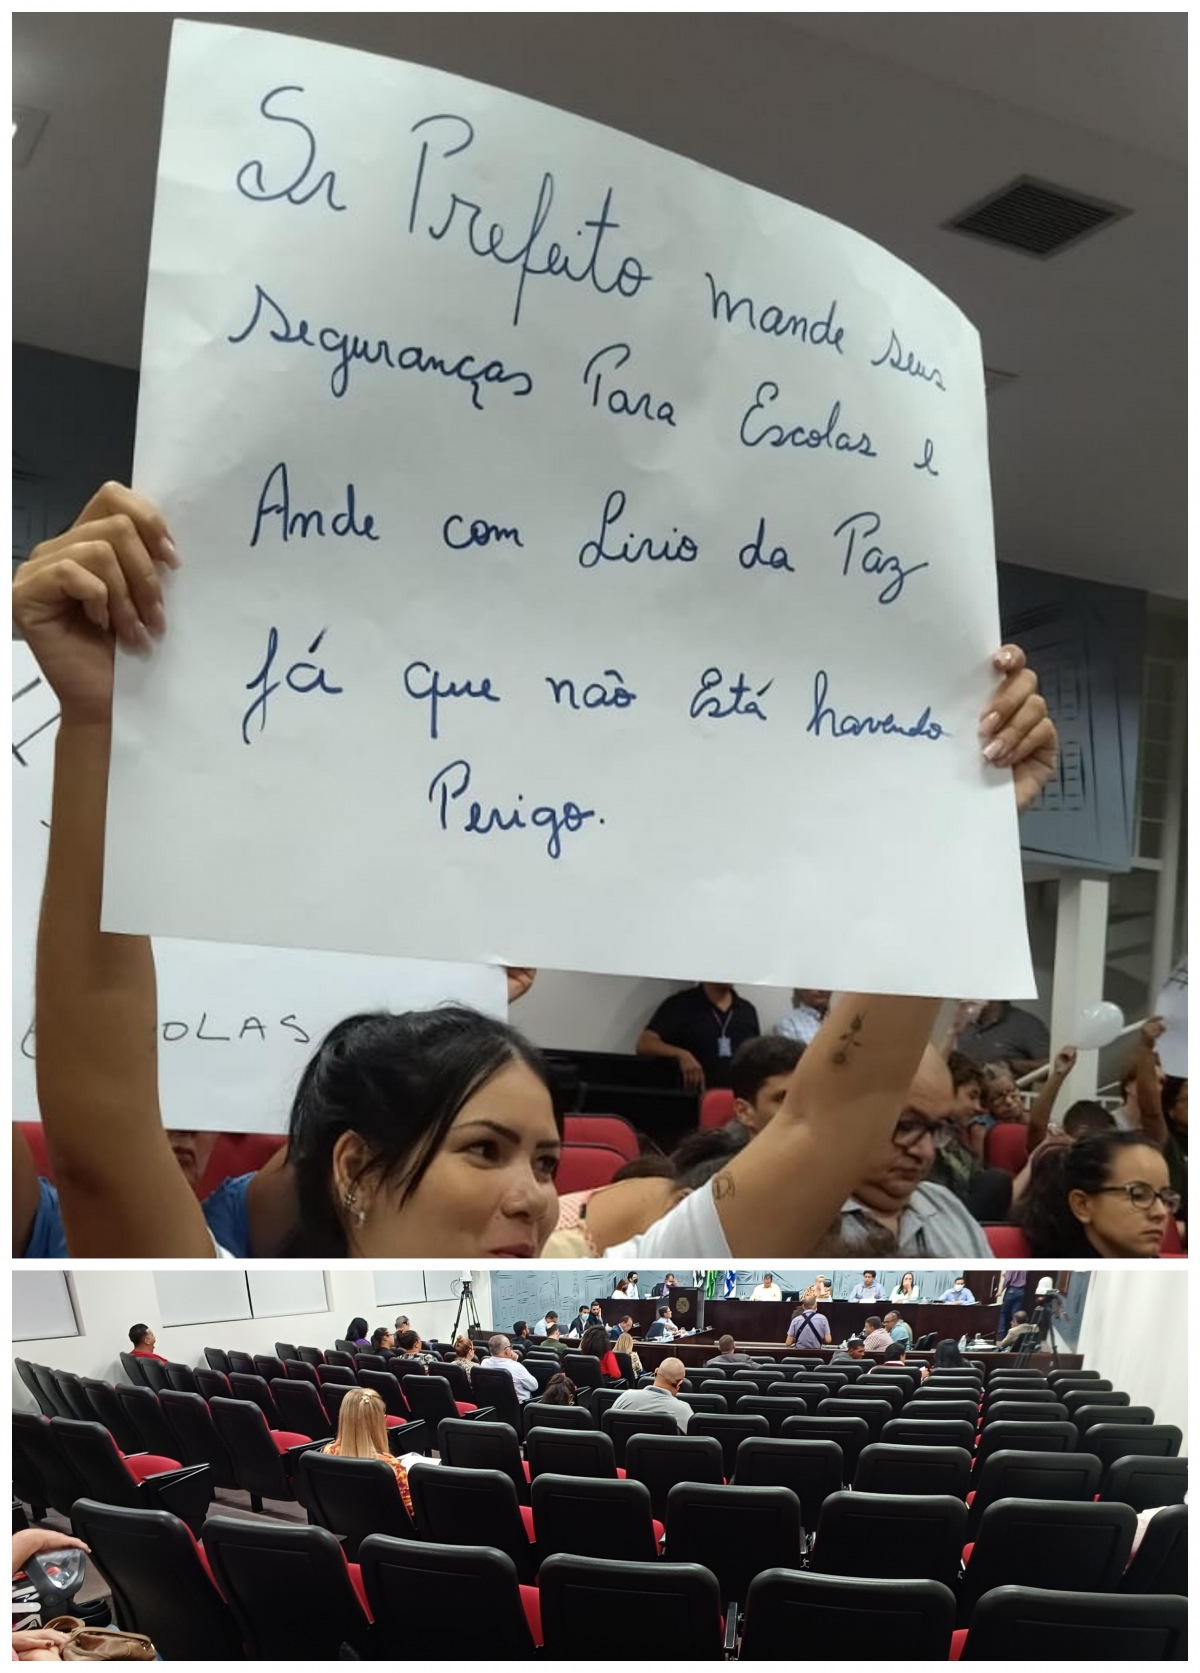 Sr Prefeito mande seus
seguranças Para Escolas e
Ande com Lirio da Paz
Já que não Está havendo
Perigo.
OLAS